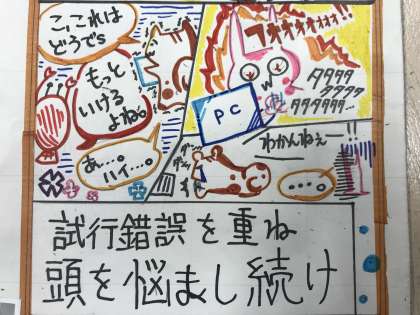 こ、これは
どうでs
もっと
いける
よね。
あ…。
ハイ…。
フォオオオオォォ!!
PC
タタタタ
タタタタ
タタタタタ…
わかんねぇー!!
‥‥。
試行錯誤を重ね
頭を悩まし続け